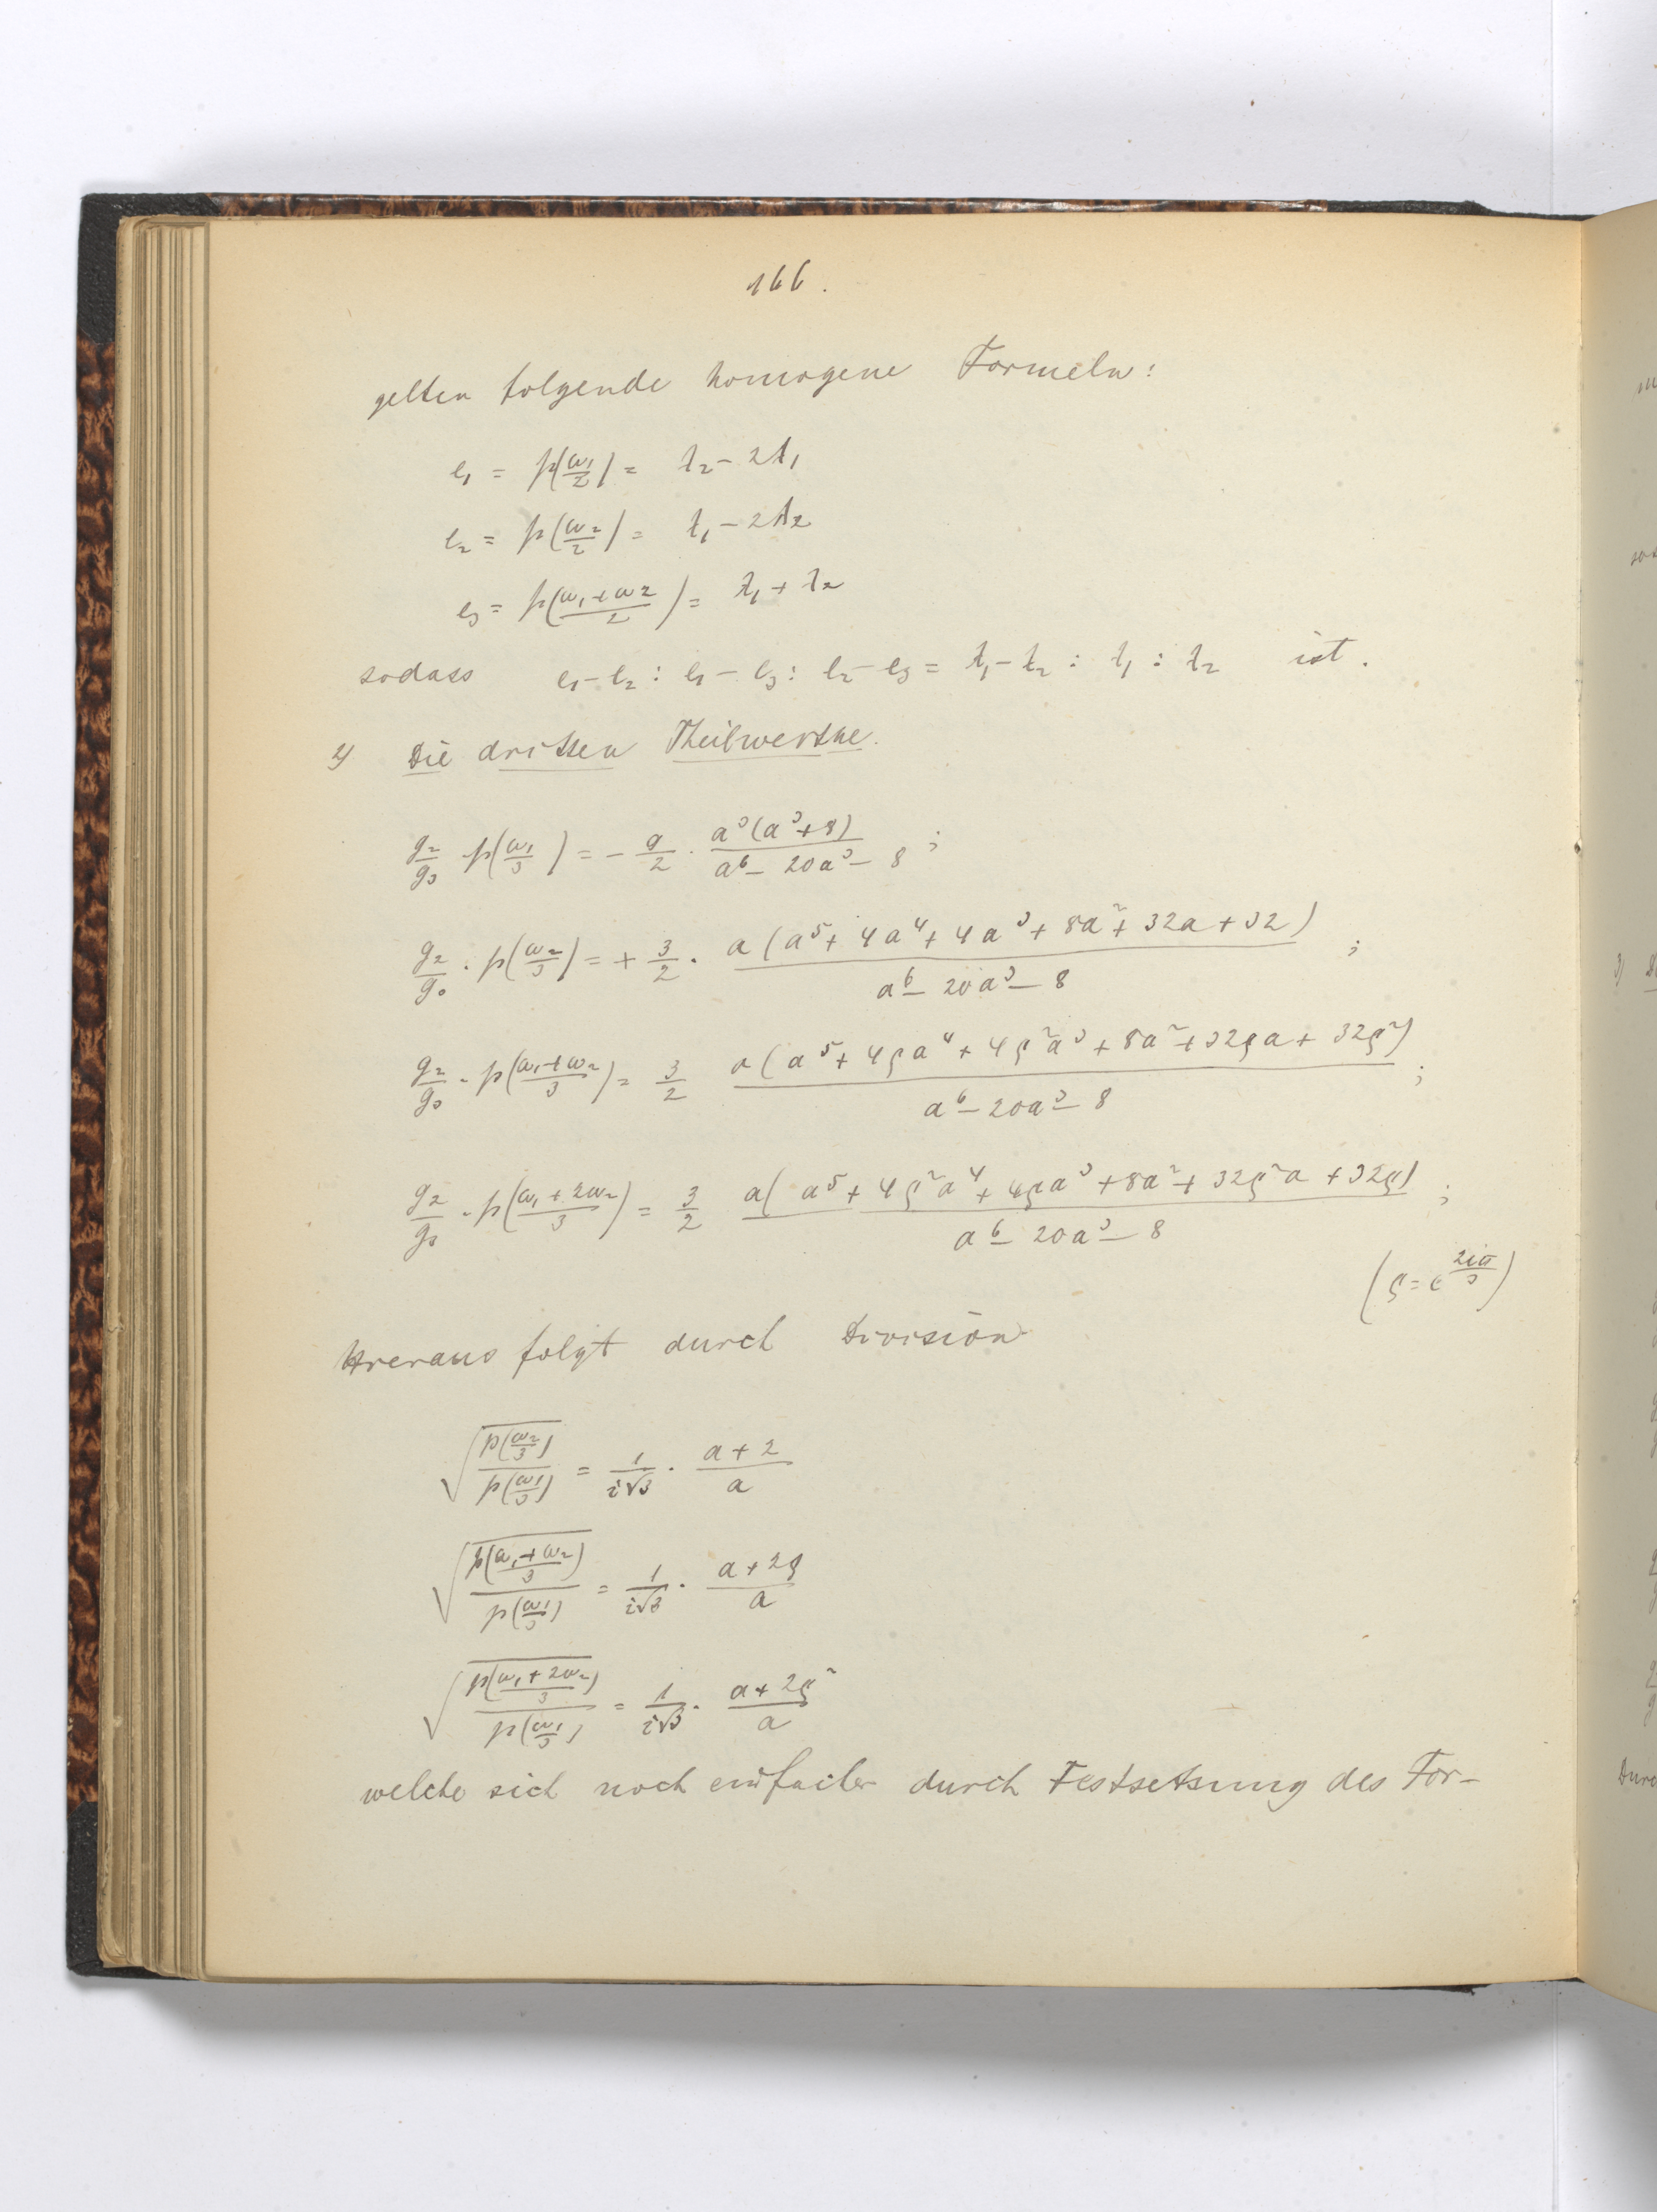 166.
gelten folgende homogene Formeln:
e₁ = p(ω₁/2) = t₂ − 2t₁
e₂ = p(ω₂/2) = t₁ − 2t₂
e₃ = p((ω₁+ω₂)/2) = t₁ + t₂
sodass e₁−e₂ : e₁−e₃ : e₂−e₃ = t₁−t₂ : t₁ : t₂ ist.
2) Die dritten Theilwerthe.
g₂/g₃ · p(ω₁/3) = − 9/2 · a³(a³+8)/(a⁶−20a³−8) ;
g₂/g₃ · p(ω₂/3) = + 3/2 · a(a⁵+4a⁴+4a³+8a²+32a+32)/(a⁶−20a³−8) ;
g₂/g₃ · p((ω₁+ω₂)/3) = 3/2 a(a⁵+4ρa⁴+4ρ²a³+8a²+32ρa+32ρ²)/(a⁶−20a³−8) ;
g₂/g₃ · p((ω₁+2ω₂)/3) = 3/2 a(a⁵+4ρ²a⁴+4ρa³+8a²+32ρ²a+32ρ)/(a⁶−20a³−8) ;
(ρ = e^(2iπ/3))
Hieraus folgt durch Division
√(p(ω₂/3)/p(ω₁/3)) = 1/(i√3) · (a+2)/a
√(p((ω₁+ω₂)/3)/p(ω₁/3)) = 1/(i√3) · (a+2ρ)/a
√(p((ω₁+2ω₂)/3)/p(ω₁/3)) = 1/(i√3) · (a+2ρ²)/a
welche sich noch einfacher durch Festsetsung des For-